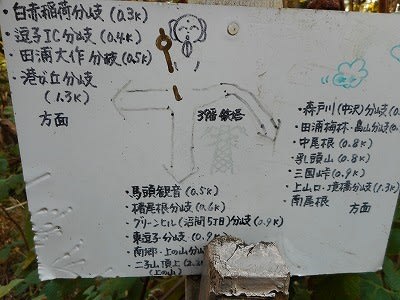 ・白赤稲荷分岐(0.3K)
・逗子IC分岐(0.4K)
・田浦大作分岐(0.5K)
・港が丘分岐
(1.3K)
方面
3階鉄塔
・森戸川(中沢)分岐(0.
・田浦梅林・畠山分岐(0.
・中尾根(0.8K)
・乳頭山(0.8K)
・三国峠(0.9K)
・上山口・境橋分岐(1.3K)
・南尾根 方面
・馬頭観音(0.5K)
・楕尾根分岐(0.6K)
・グリーンヒル(沼間5丁目)分岐(0.9K)
・東逗子分岐(0.9K
・南郷・上の山分岐
・二子山頂上(2.
(上の山)